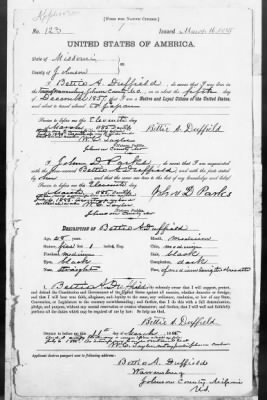 [FORM FOR NATIVE CITIZEN.]
No. 123 Issued March 16 1885
UNITED STATES OF AMERICA.
State of Missouri
County of Johnson
I, Bettie A. Duffield, do swear that I was born
in on or about the fifth day
of December 1857; that I am a Native and Loyal Citizen of the United States,
and about to travel abroad
Sworn to before me this Eleventh
day of March 1885
Bettie A. Duffield
Notary Public
Johnson County Mo
I, John D Parks, do swear that I am acquainted
with the above-named Bettie A Duffield and with the facts
stated by her and that the same are true to the best of my knowledge and belief.
Sworn to before me this Eleventh
day of March 1885
John D. Parks
Notary Public
Johnson County Mo
DESCRIPTION OF Bettie A Duffield
Age, years. Mouth, medium
Stature, feet inches, Eng. Chin, medium
Forehead, medium Hair, black
Eyes, black Complexion, dark
Nose, straight Face,
I, Bettie A. Duffield do solemnly swear that I will support, protect,
and defend the Constitution and Government of the United States against all enemies, whether domestic or foreign;
and that I will bear true faith, allegiance, and loyalty to the same, any ordinance, resolution, or law of any State,
Convention, or Legislature to the contrary notwithstanding; and further, that I do this with a full determination,
pledge, and purpose, without any mental reservation or evasion whatsoever; and further, that I will well and faithfully
perform all the duties which may be required of me by law: So help me God.
Bettie A. Duffield
Sworn to before me this 11th day of March 1885
Applicant desires passport sent to following address:
Bettie A. Duffield
Warrensburg
Johnson County Missouri
U.S.